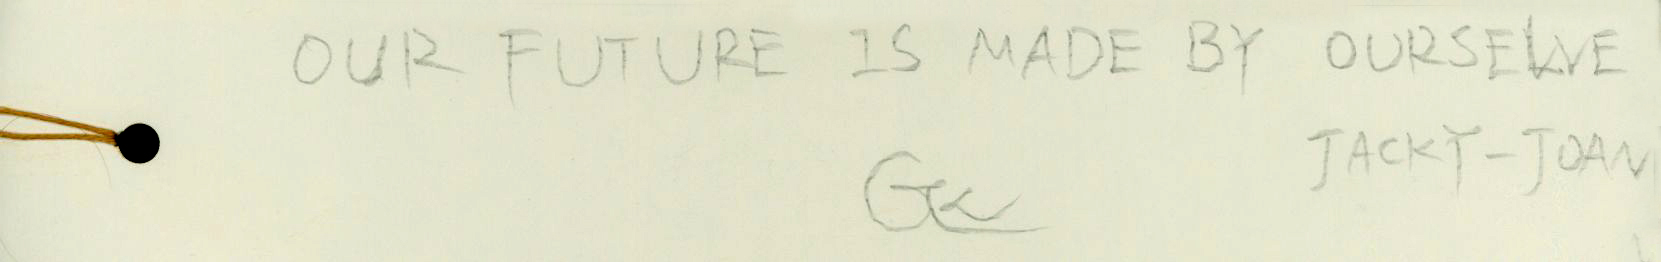 OUR FUTURE IS MADE BY OURSELVE
JACKY-JOAN